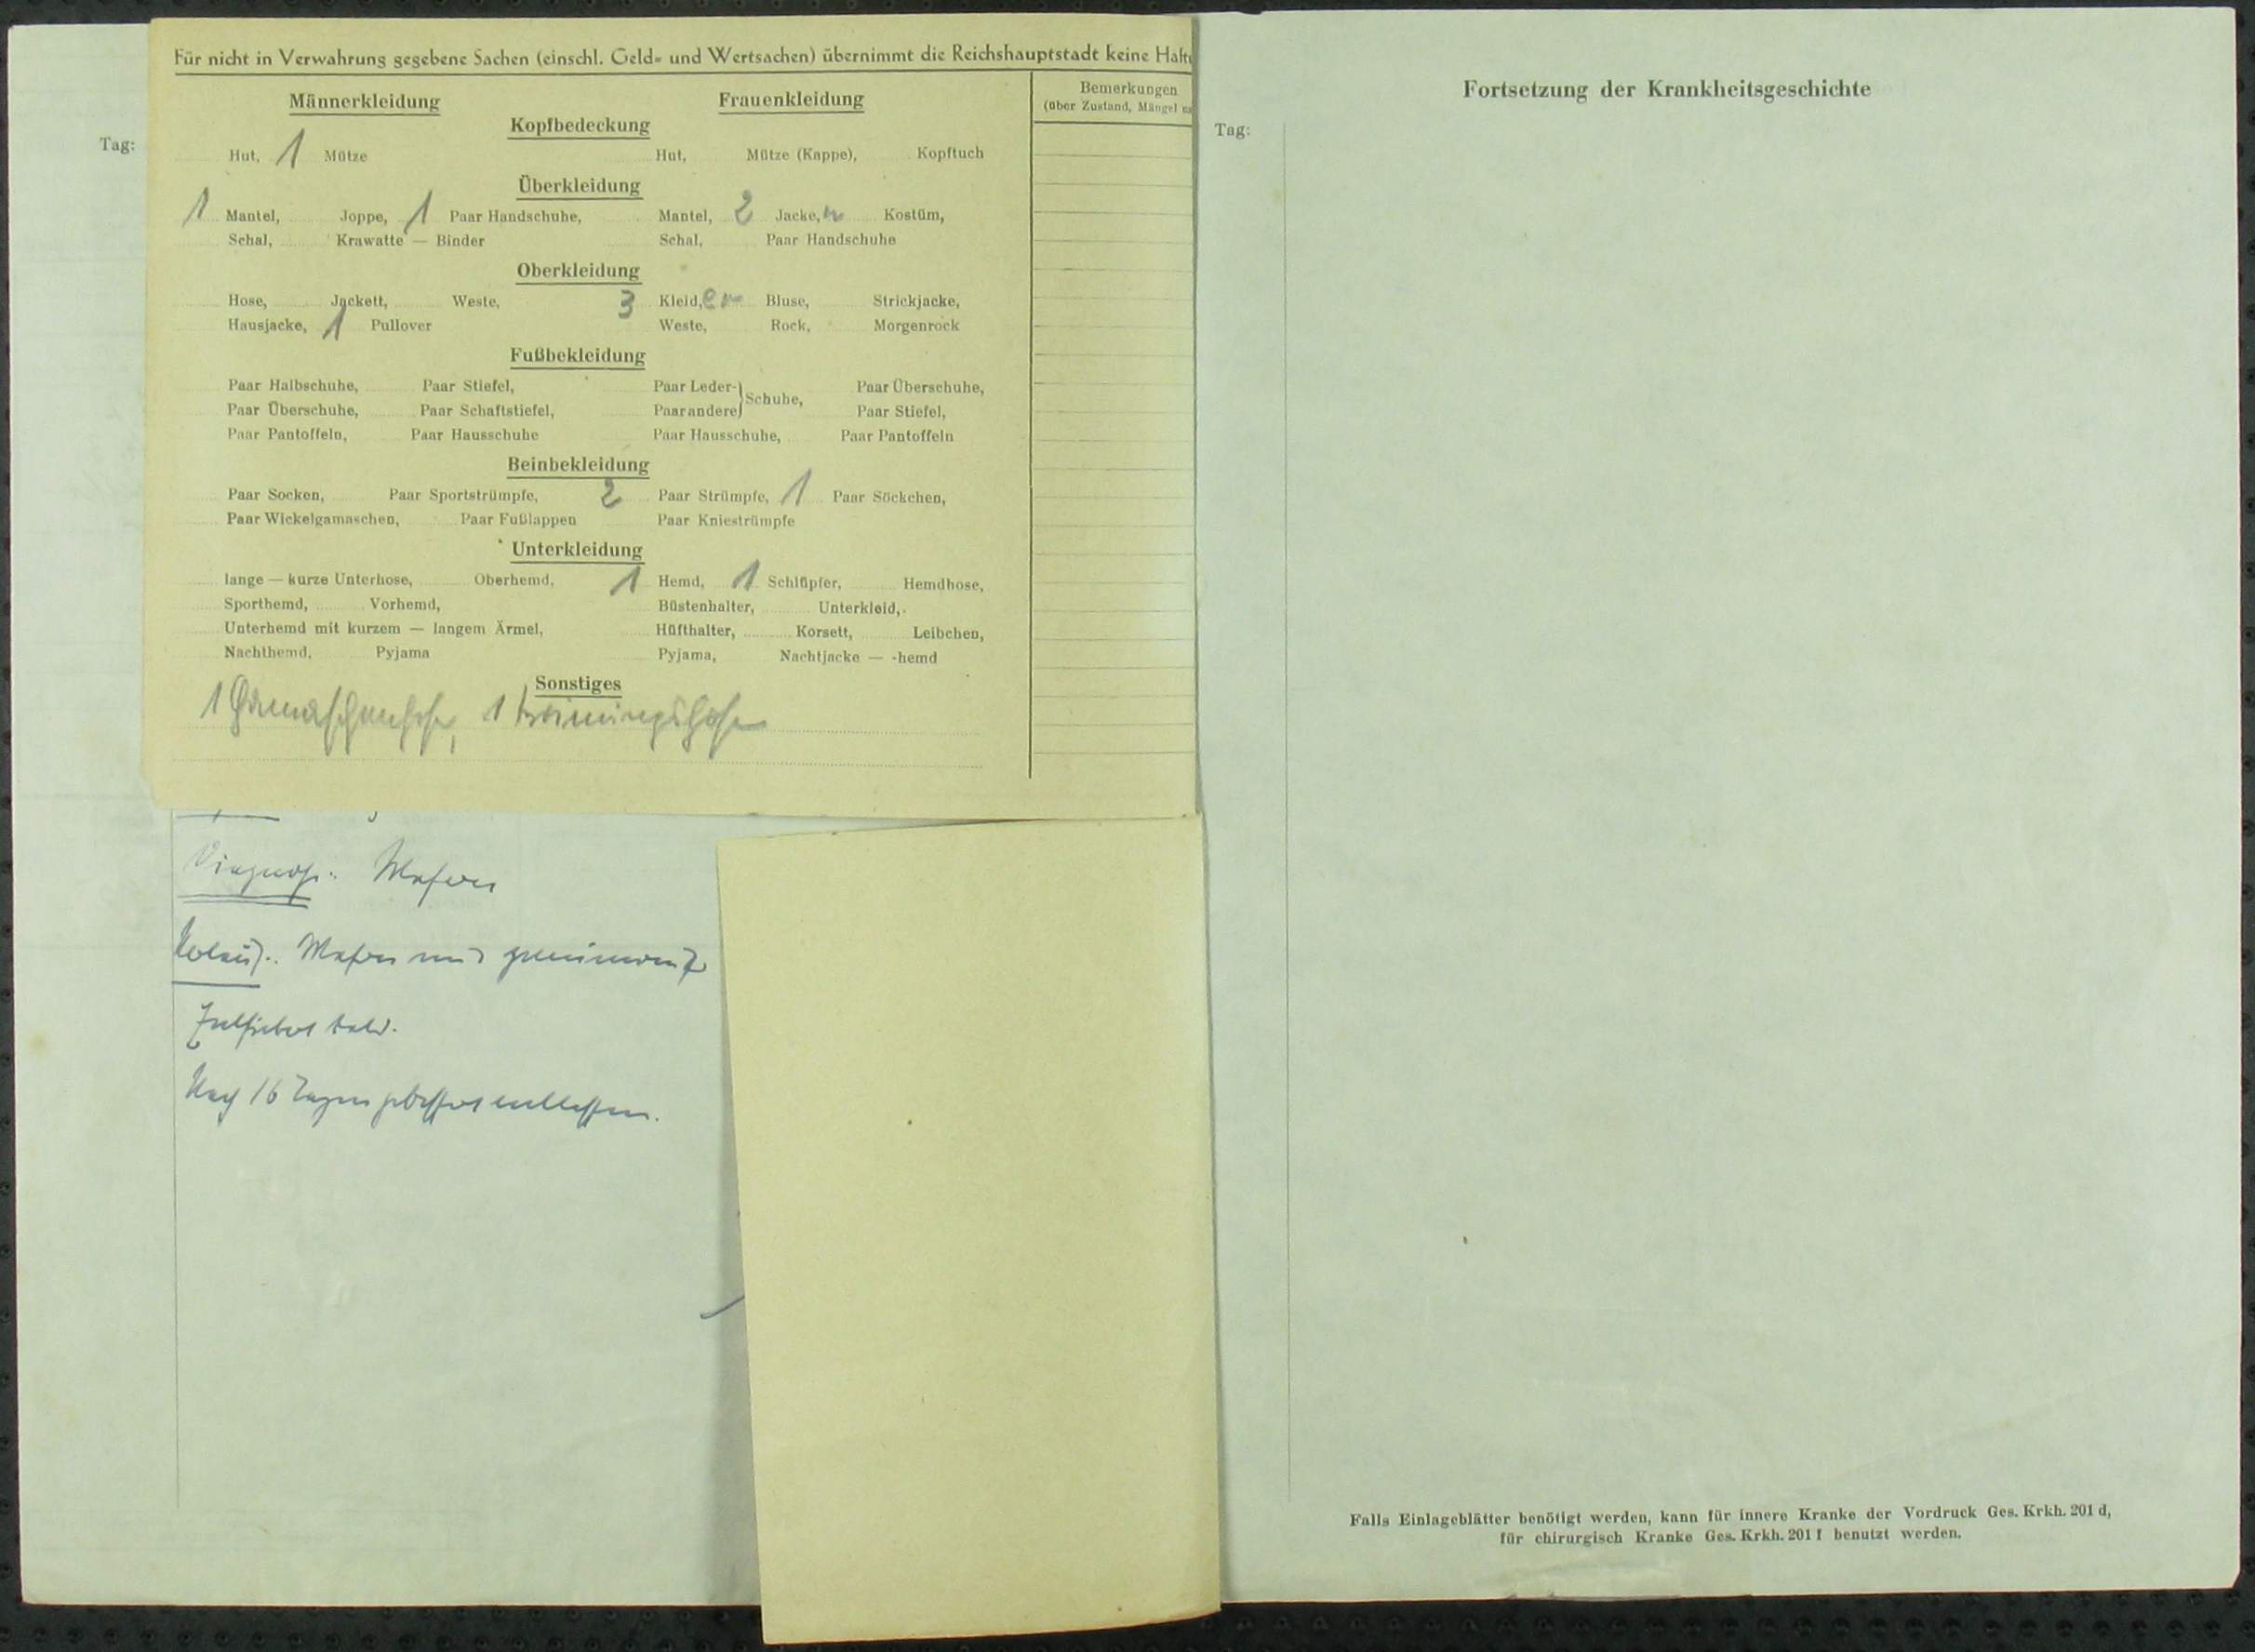 Für nicht in Verwahrung gegebene Sachen (einschl. Geld- und Wertsachen) übernimmt die Reichshauptstadt keine Haft
Männerkleidung Frauenkleidung
Bemerkungen
(über Zustand, Mängel
Kopfbedeckung
Hut, 1 Mütze Hut, Mütze (Kappe), Kopftuch
Überkleidung
1 Mantel, Joppe, 1 Paar Handschuhe, Mantel, 2 Jacke,n Kostüm,
Schal, Krawatte — Binder Schal, Paar Handschuhe
Oberkleidung
Hose, Jackett, Weste, 3 Kleid,er Bluse, Strickjacke,
Hausjacke, 1 Pullover Weste, Rock, Morgenrock
Fußbekleidung
Paar Halbschuhe, Paar Stiefel, Paar Leder- Schuhe, Paar Überschuhe,
Paar Überschuhe, Paar Schaftstiefel, Paar andere Paar Stiefel,
Paar Pantoffeln, Paar Hausschuhe Paar Hausschuhe, Paar Pantoffeln
Beinbekleidung
Paar Socken, Paar Sportstrümpfe, 2 Paar Strümpfe, 1 Paar Söckchen,
Paar Wickelgamaschen, Paar Fußlappen Paar Kniestrümpfe
Unterkleidung
lange — kurze Unterhose, Oberhemd, 1 Hemd, 1 Schlüpfer, Hemdhose,
Sporthemd, Vorhemd, Büstenhalter, Unterkleid,
Unterhemd mit kurzem — langem Ärmel, Hüfthalter, Korsett, Leibchen,
Nachthemd, Pyjama Pyjama, Nachtjacke — -hemd
Sonstiges
1 Gamaschenhose, 1 Trainingshose
Tag:
Diagnose: Masern
Verlauf: Masern mit
Nach 16 Tagen gebessert entlassen.
Fortsetzung der Krankheitsgeschichte
Tag:
Falls Einlageblätter benötigt werden, kann für innere Kranke der Vordruck Ges. Krkh. 201 d,
für chirurgisch Kranke Ges. Krkh. 201 f benutzt werden.